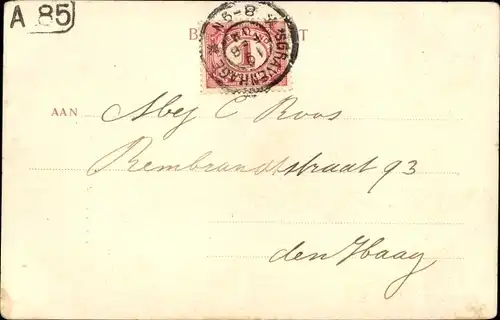 A 85
'SGRAVENHAGE
8-9N
1
AAN
Mej C Roos
Rembrandtstraat 93
den Haag